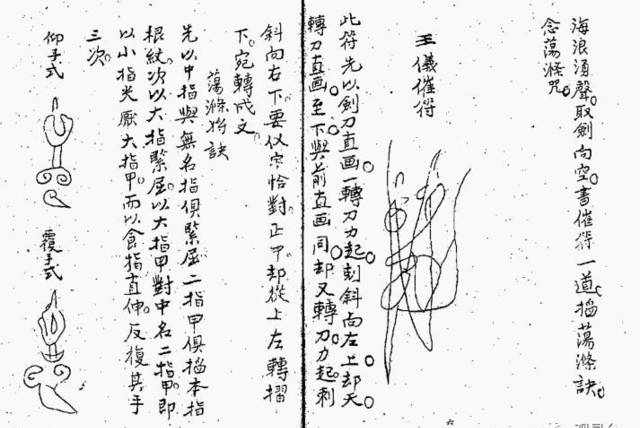 海浪湧聲。取劍向空書催符一道。掐蕩滌訣。
念蕩滌咒。
王儀催符
此符先以劍刀直画一轉刀力起刻斜向左上却夭
轉刀直画。至下與前直画同却又轉刀力起刺
斜向右下。要似定恰對。正中却從上左轉摺
下。宛轉成文。
蕩滌指訣
先以中指與無名指俱緊屈二指甲俱掐本指
根紋。次以大指緊屈。以大指甲對中名二指甲。即
以小指尖厭大指甲。而以食指直伸。反復其手
三次。
仰手式
覆手式
六